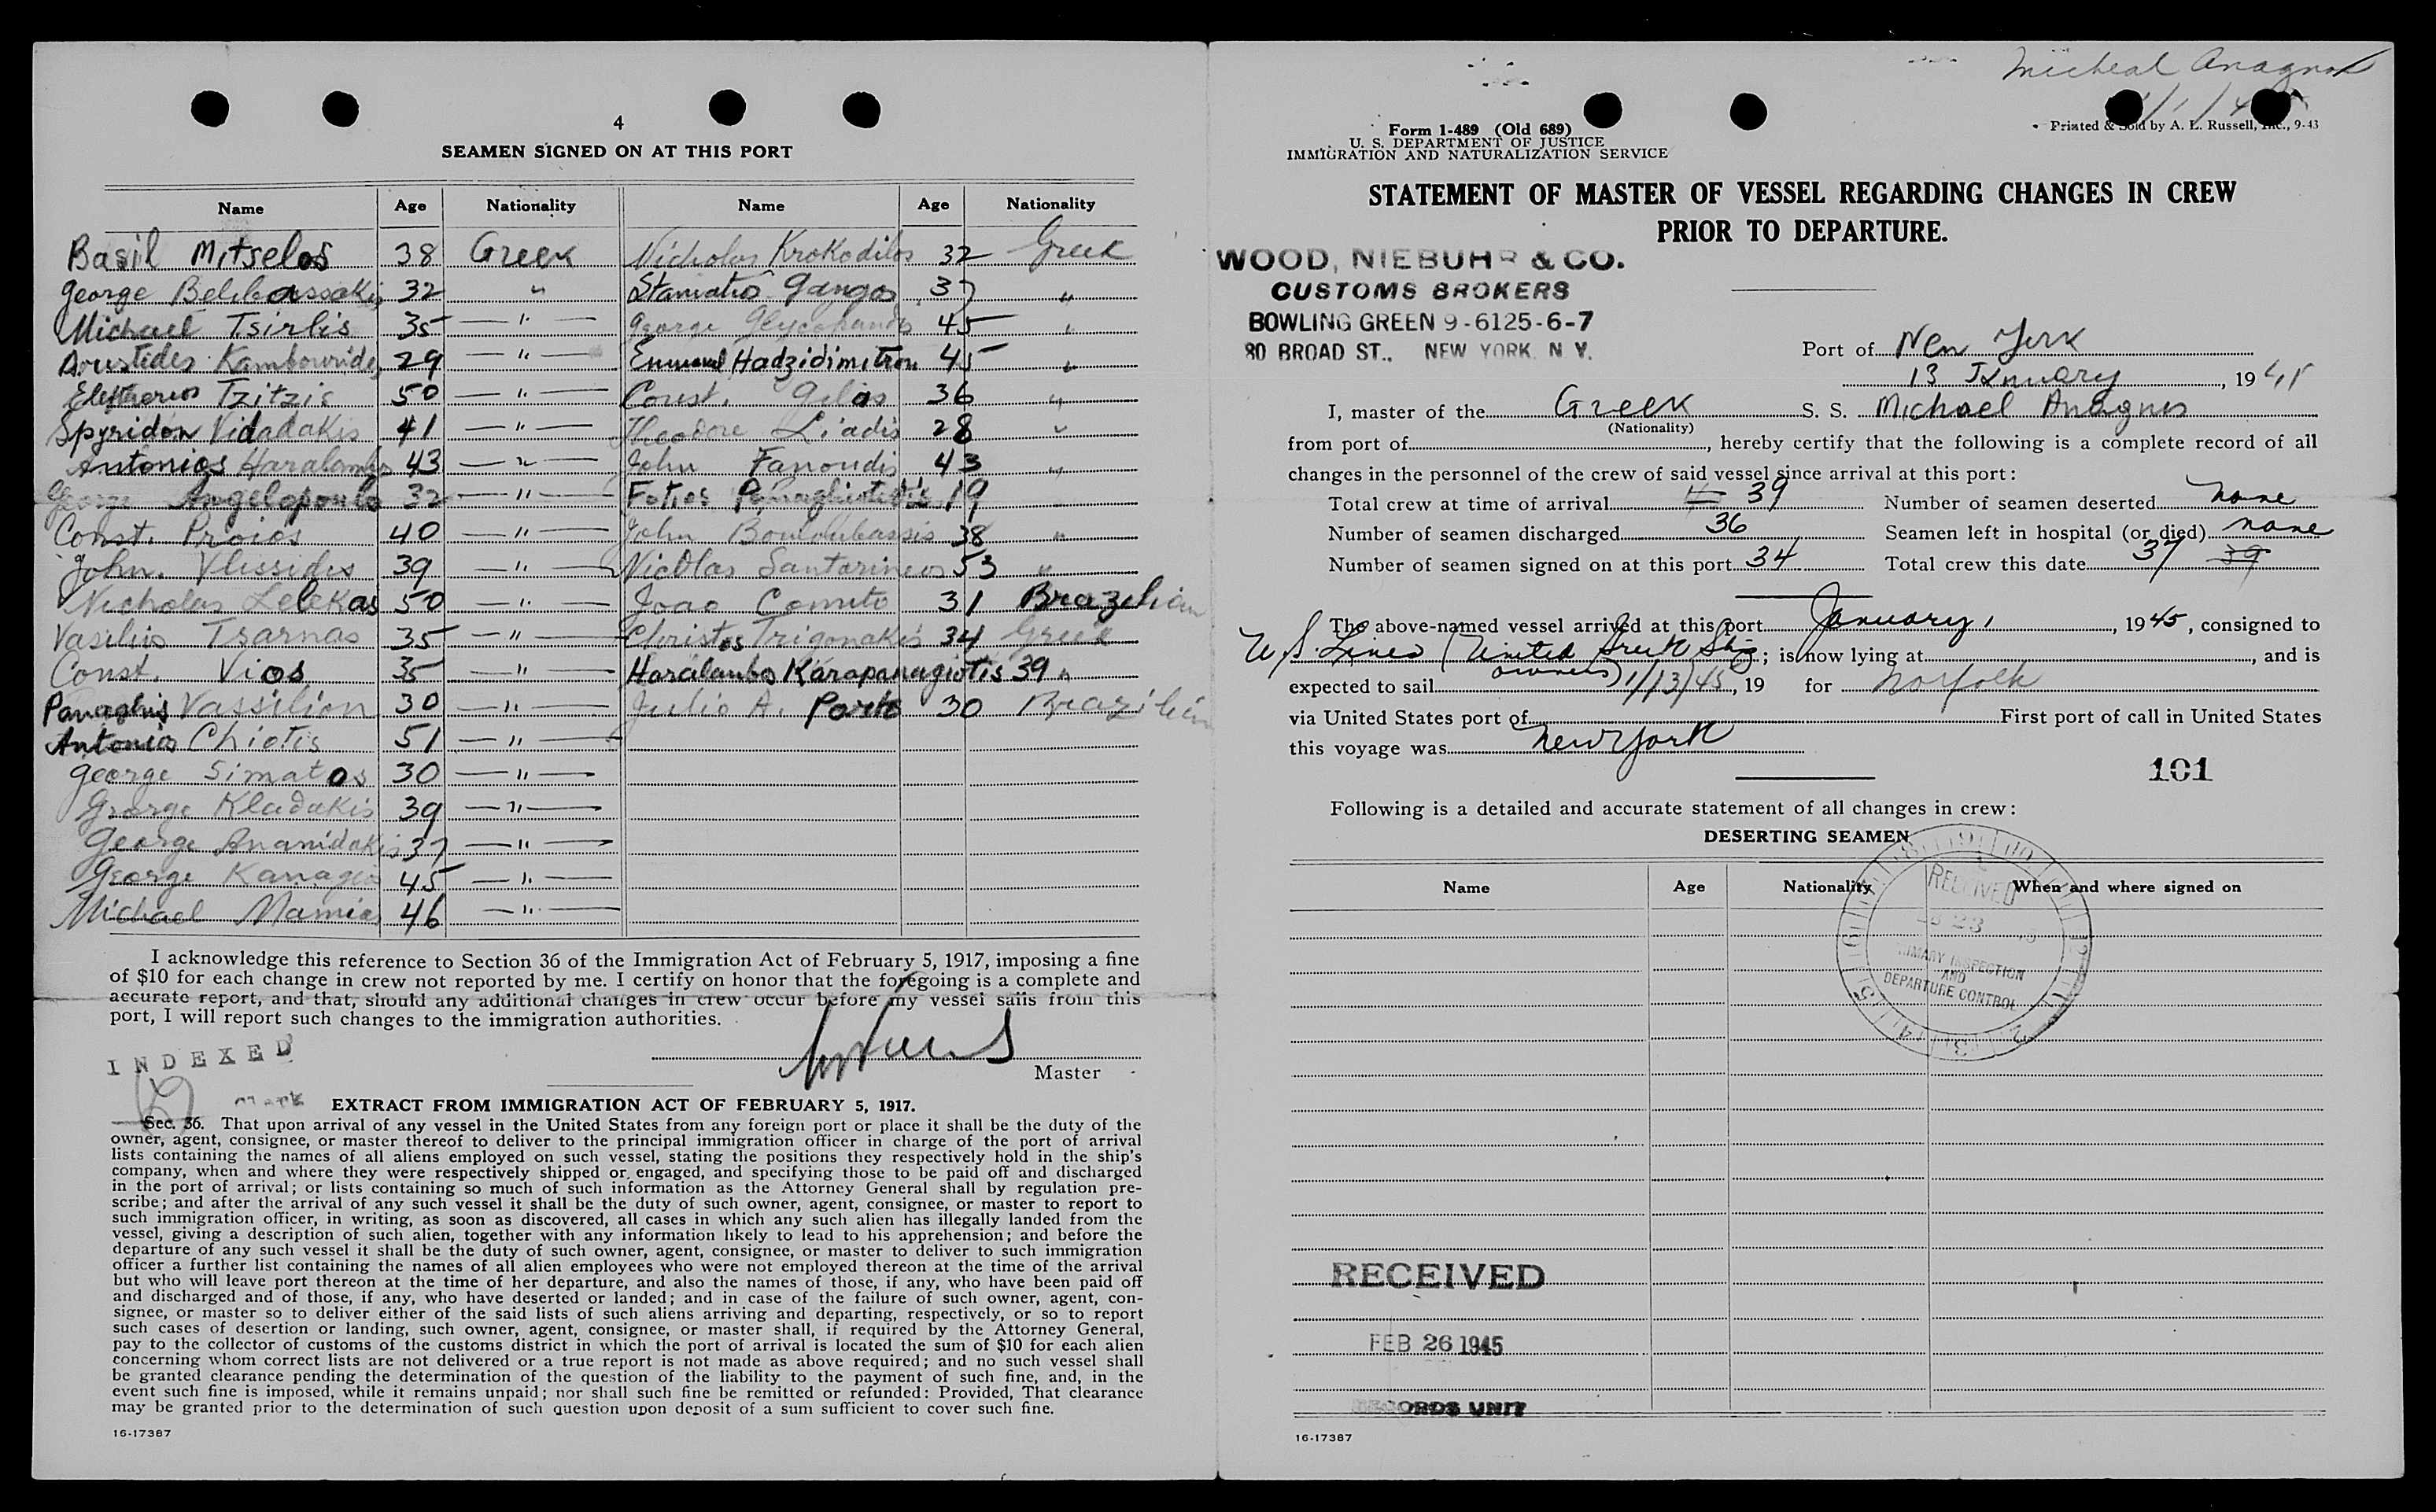 4
SEAMEN SIGNED ON AT THIS PORT
Name Age Nationality Name Age Nationality
Basil Mitselos 38 Greek Nicholas Krokodilos 32 Greek
George 32 " Stamatios Gangos 37 "
Michael Tsirlis 35 — " — George 45 "
Kambourides 29 — " — Hadzidimitrou 45 "
Elefterios Tzitzis 50 — " — Const. Gilas 36 "
Spyridon Vidadakis 41 — " — Theodore Liadis 28 "
Antonios Haralambos 43 — " — John Fanoudis 43 "
George Angelopoulos 32 — " — Fotios 19 "
Const. Proios 40 — " — John Bouloubassis 38 "
John. Vlissides 39 — " — Nicolas Santorineos 53 "
Nicholas Lelekas 50 — " — Joao 31 Brazilian
Vasilios Tsarnas 35 — " — Christos Trigonakis 34 Greek
Const. Vios 35 — " — Haralambos Karapanagiotis 39 "
Vassiliou 30 — " — Julio A. Porto 30 Brazilian
Antonios Chiotis 51 — " —
George Simatos 30 — " —
George Kladakis 39 — " —
George Ananidakis 37 — " —
George 45 — " —
Michael Mamias 46 — " —
I acknowledge this reference to Section 36 of the Immigration Act of February 5, 1917, imposing a fine
of $10 for each change in crew not reported by me. I certify on honor that the foregoing is a complete and
accurate report, and that, should any additional changes in crew occur before my vessel sails from this
port, I will report such changes to the immigration authorities.
INDEXED
Master
Clerk
EXTRACT FROM IMMIGRATION ACT OF FEBRUARY 5, 1917.
Sec. 36. That upon arrival of any vessel in the United States from any foreign port or place it shall be the duty of the
owner, agent, consignee, or master thereof to deliver to the principal immigration officer in charge of the port of arrival
lists containing the names of all aliens employed on such vessel, stating the positions they respectively hold in the ship's
company, when and where they were respectively shipped or engaged, and specifying those to be paid off and discharged
in the port of arrival; or lists containing so much of such information as the Attorney General shall by regulation pre-
scribe; and after the arrival of any such vessel it shall be the duty of such owner, agent, consignee, or master to report to
such immigration officer, in writing, as soon as discovered, all cases in which any such alien has illegally landed from the
vessel, giving a description of such alien, together with any information likely to lead to his apprehension; and before the
departure of any such vessel it shall be the duty of such owner, agent, consignee, or master to deliver to such immigration
officer a further list containing the names of all alien employees who were not employed thereon at the time of the arrival
but who will leave port thereon at the time of her departure, and also the names of those, if any, who have been paid off
and discharged and of those, if any, who have deserted or landed; and in case of the failure of such owner, agent, con-
signee, or master so to deliver either of the said lists of such aliens arriving and departing, respectively, or so to report
such cases of desertion or landing, such owner, agent, consignee, or master shall, if required by the Attorney General,
pay to the collector of customs of the customs district in which the port of arrival is located the sum of $10 for each alien
concerning whom correct lists are not delivered or a true report is not made as above required; and no such vessel shall
be granted clearance pending the determination of the question of the liability to the payment of such fine, and, in the
event such fine is imposed, while it remains unpaid; nor shall such fine be remitted or refunded: Provided, That clearance
may be granted prior to the determination of such question upon deposit of a sum sufficient to cover such fine.
16-17387
Micheal Anagnos
1/1/45
Form 1-489 (Old 689)
U. S. DEPARTMENT OF JUSTICE
IMMIGRATION AND NATURALIZATION SERVICE
Printed & Sold by A. L. Russell, Inc., 9-43
STATEMENT OF MASTER OF VESSEL REGARDING CHANGES IN CREW
PRIOR TO DEPARTURE.
WOOD, NIEBUHR & CO.
CUSTOMS BROKERS
BOWLING GREEN 9-6125-6-7
80 BROAD ST., NEW YORK, N. Y.
Port of New York
13 January, 1945
I, master of the Greek S. S. Michael Anagnos
(Nationality)
from port of, hereby certify that the following is a complete record of all
changes in the personnel of the crew of said vessel since arrival at this port:
Total crew at time of arrival 39 Number of seamen deserted none
Number of seamen discharged 36 Seamen left in hospital (or died) none
Number of seamen signed on at this port 34 Total crew this date 37 39
The above-named vessel arrived at this port January 1, 1945, consigned to
U S. Lines (United Greek Ship; is now lying at, and is
owners)
expected to sail 1/13/45, 19 for Norfolk
via United States port of First port of call in United States
this voyage was New York
101
Following is a detailed and accurate statement of all changes in crew:
DESERTING SEAMEN
Name Age Nationality When and where signed on
RECEIVED
PRIMARY INSPECTION
AND
DEPARTURE CONTROL
RECEIVED
FEB 26 1945
RECORDS UNIT
16-17387